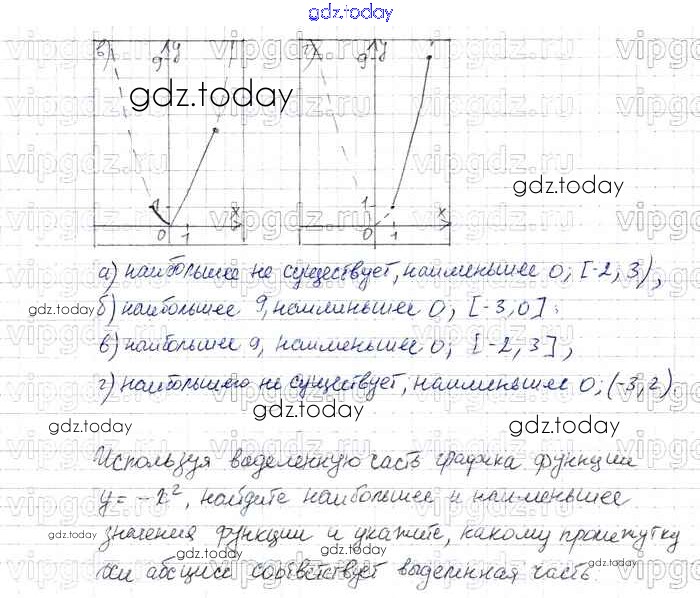 gdz.today
в) 9 y г) 9 y
gdz.today
gdz.today
1 x 1 x
0 1 0 1
а) наибольшее не существует, наименьшее 0; [-2, 3),
gdz.today б) наибольшее 9, наименьшее 0; [-3, 0];
в) наибольшее 9, наименьшее 0; [-2, 3],
г) наибольшего не существует, наименьшее 0; (-3, 2)
gdz.today gdz.today gdz.today
Используя выделенную часть графика функции
y = -x², найдите наибольшее и наименьшее
значения функции и укажите, какому промежутку
gdz.today gdz.today gdz.today
оси абсцисс соответствует выделенная часть.
gdz.today gdz.today